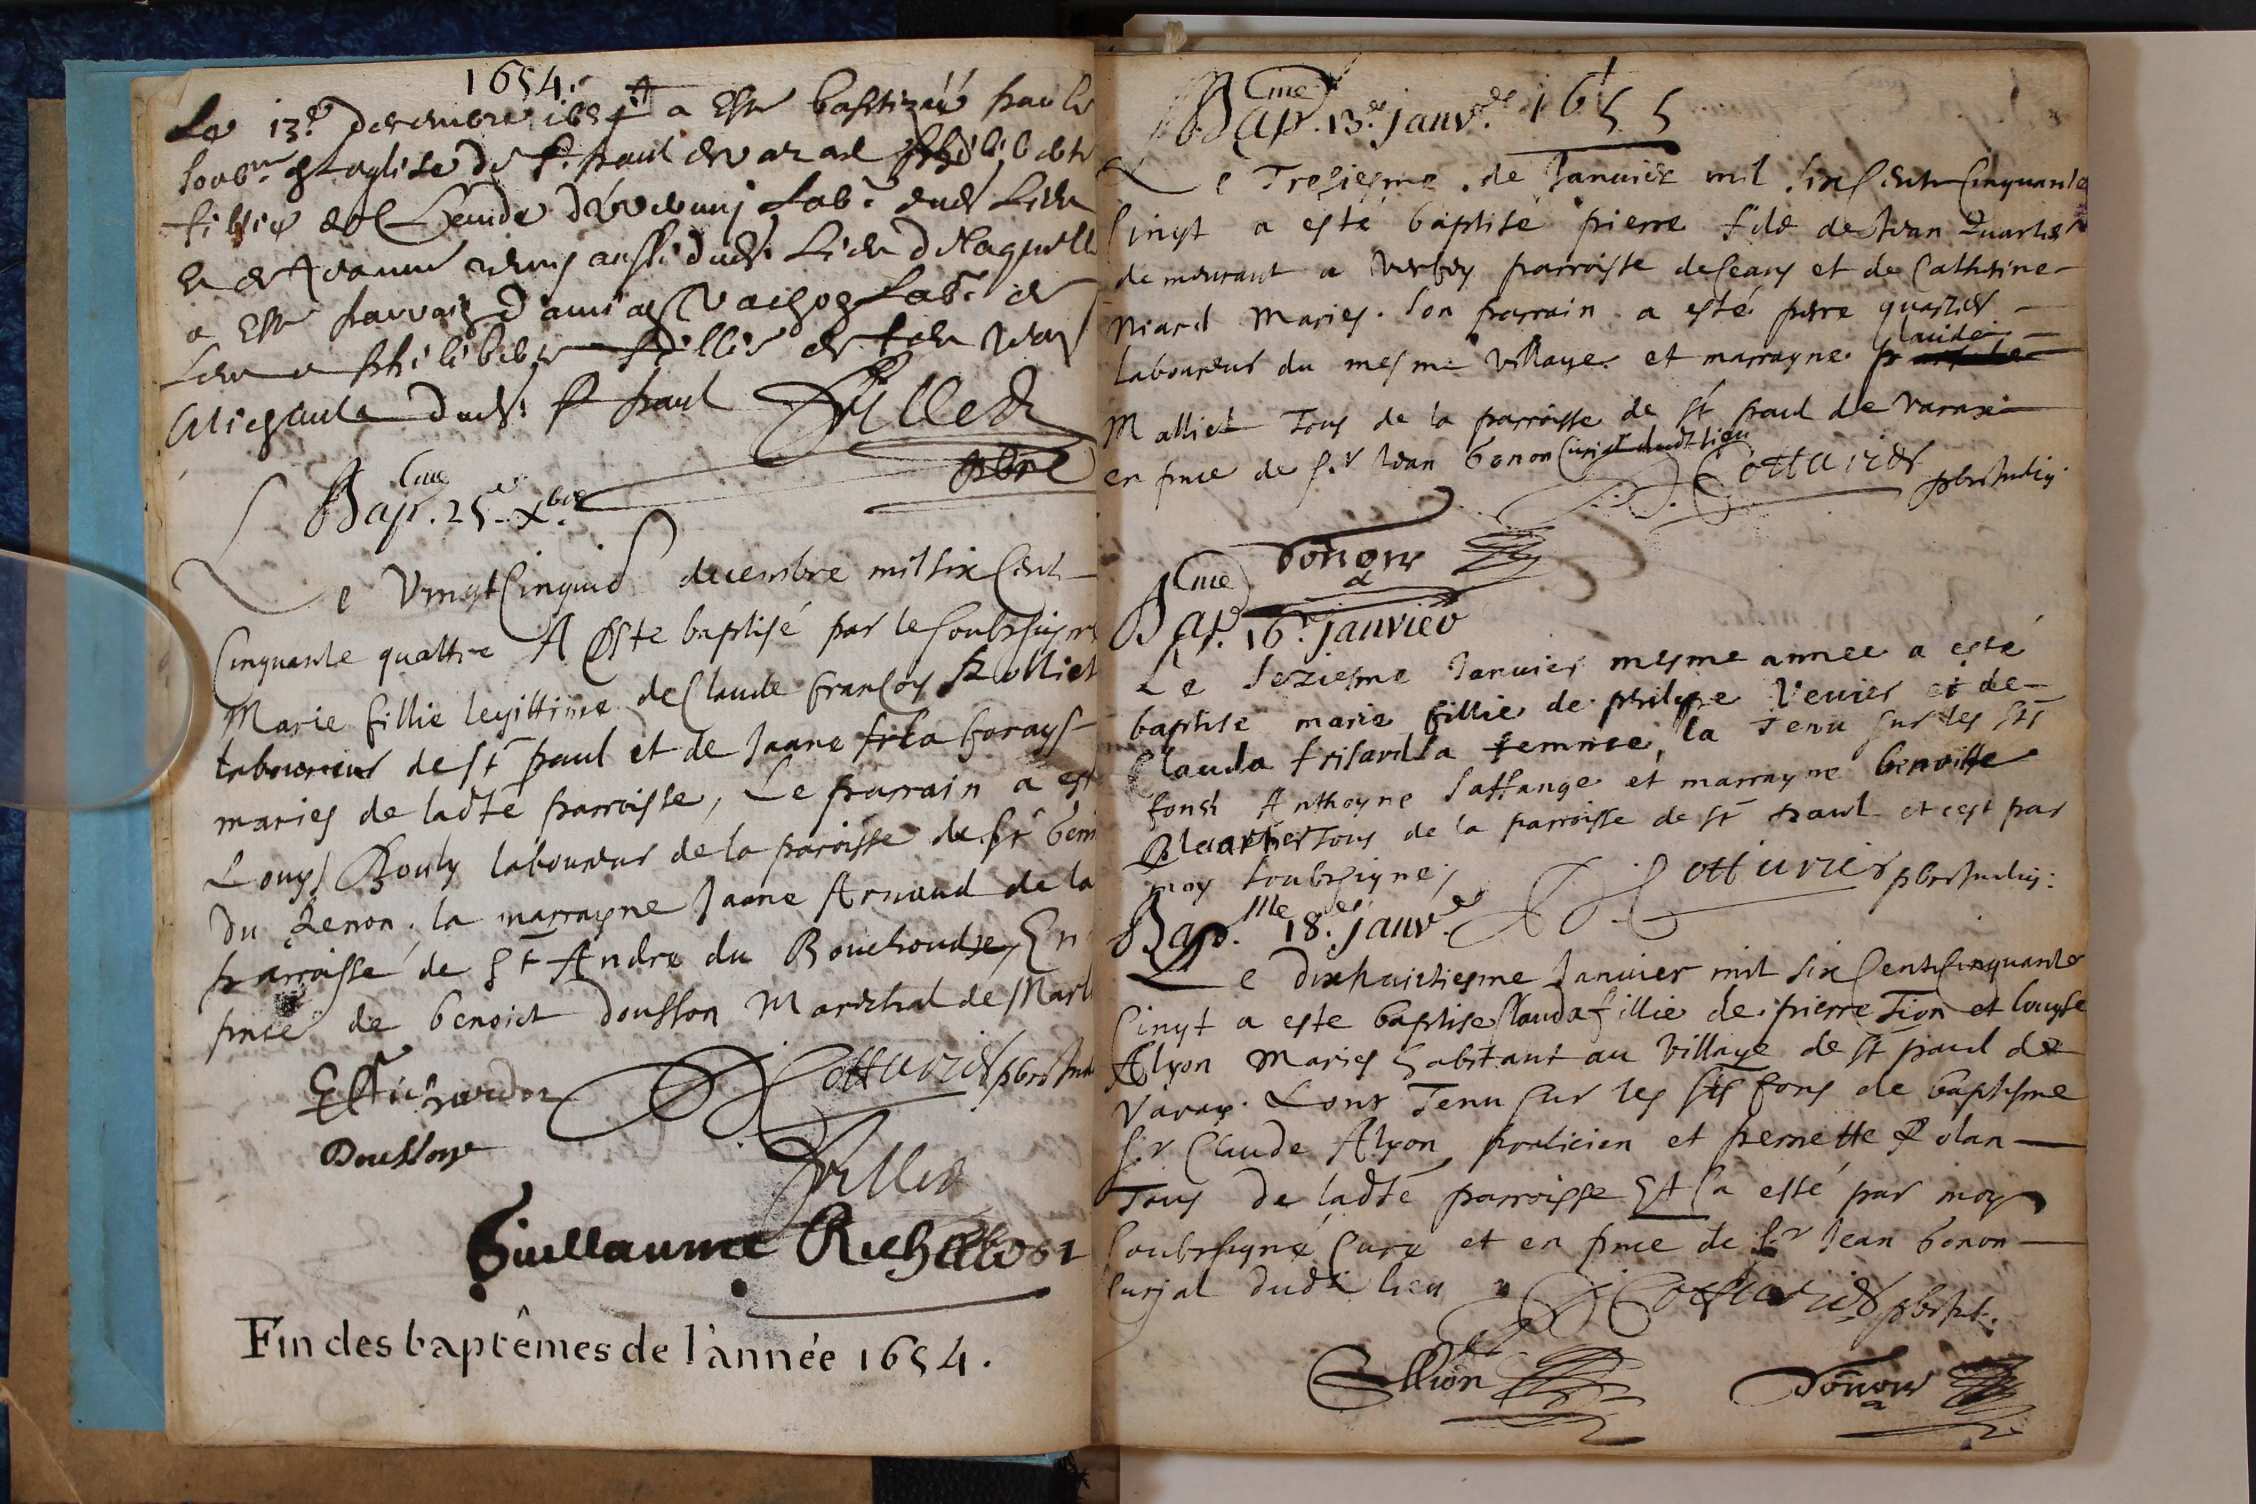 1654.
Le 13e decembre 1654 a este baptizée par le
soubne en leglise de st paul de varax philiberte
fillie de Claude labr dudt Lieu
et de Jeanne aussi dudt Lieu de laquelle
a este parrain Vachon labr du
Lieu et philiberte fillie de feu
dudt st paul Fillied
pbre
Bapme 25e xbre
Le Vingt Cinquie decembre mil six Cent
Cinquante quattre A Este baptisé par le soubsigné
Marie fillie legittime de Claude françoys Rolliet
laboureur de st paul et de Jeane
maries de ladte parroisse, Le parrain a est
Louys Bouly laboureur de la paroisse de st
du Renon. la marrayne Jeane Arnaud de la
parroisse de St Andre du Bouchoudre, En
pnce de benoict dousson Mareschal de Marl
Cottarier pbre
Doussong
Fillied
Guillaume Richardon
Fin des baptêmes de l'année 1654.
Bapme 13e janver 1655
Le Tresiesme de Janvier mil six Cent Cinquante
Cinqt a esté baptisé pierre filz de Jean Quartier
demeurant a parroisse de ceans et de Catherine
Niard Maries. Son parrain a esté pierre quartier
laboureur du mesme village et marrayne Claude
Malliet Tous de la parroisse de st paul de varax
en pnce de Sr Jean bonon Curial dudt lieu
Cottarier pbre
Bonon
Bapme 16e janvier
Le Seziesme Janvier mesme annee a esté
baptise marie fillie de philippe Venier et de
Clauda frisard sa femme, la Tenu sur les sts
fonds Anthoyne Laffange et marrayne benoiste
Quartier Tous de la parroisse de st paul et cest par
moy soubsigné,
Cottarier pbre
Bapme 18e janver
Le dixhuictiesme Janvier mil six Cent Cinquante
Cinqt a este baptise Clauda fillie de pierre Tion et louyse
Alyon Maries habitant au Village de st paul de
Varax. Lont Tenu sur les sts fons de baptesme
Sr Claude Alyon praticien et pernette Rolan
Tous de ladte parroisse Et Ca esté par moy
soubsigné Curé et en pnce de Sr Jean bonon
Curial dudt lieu
Cottarier pbre
Allion
Bonon